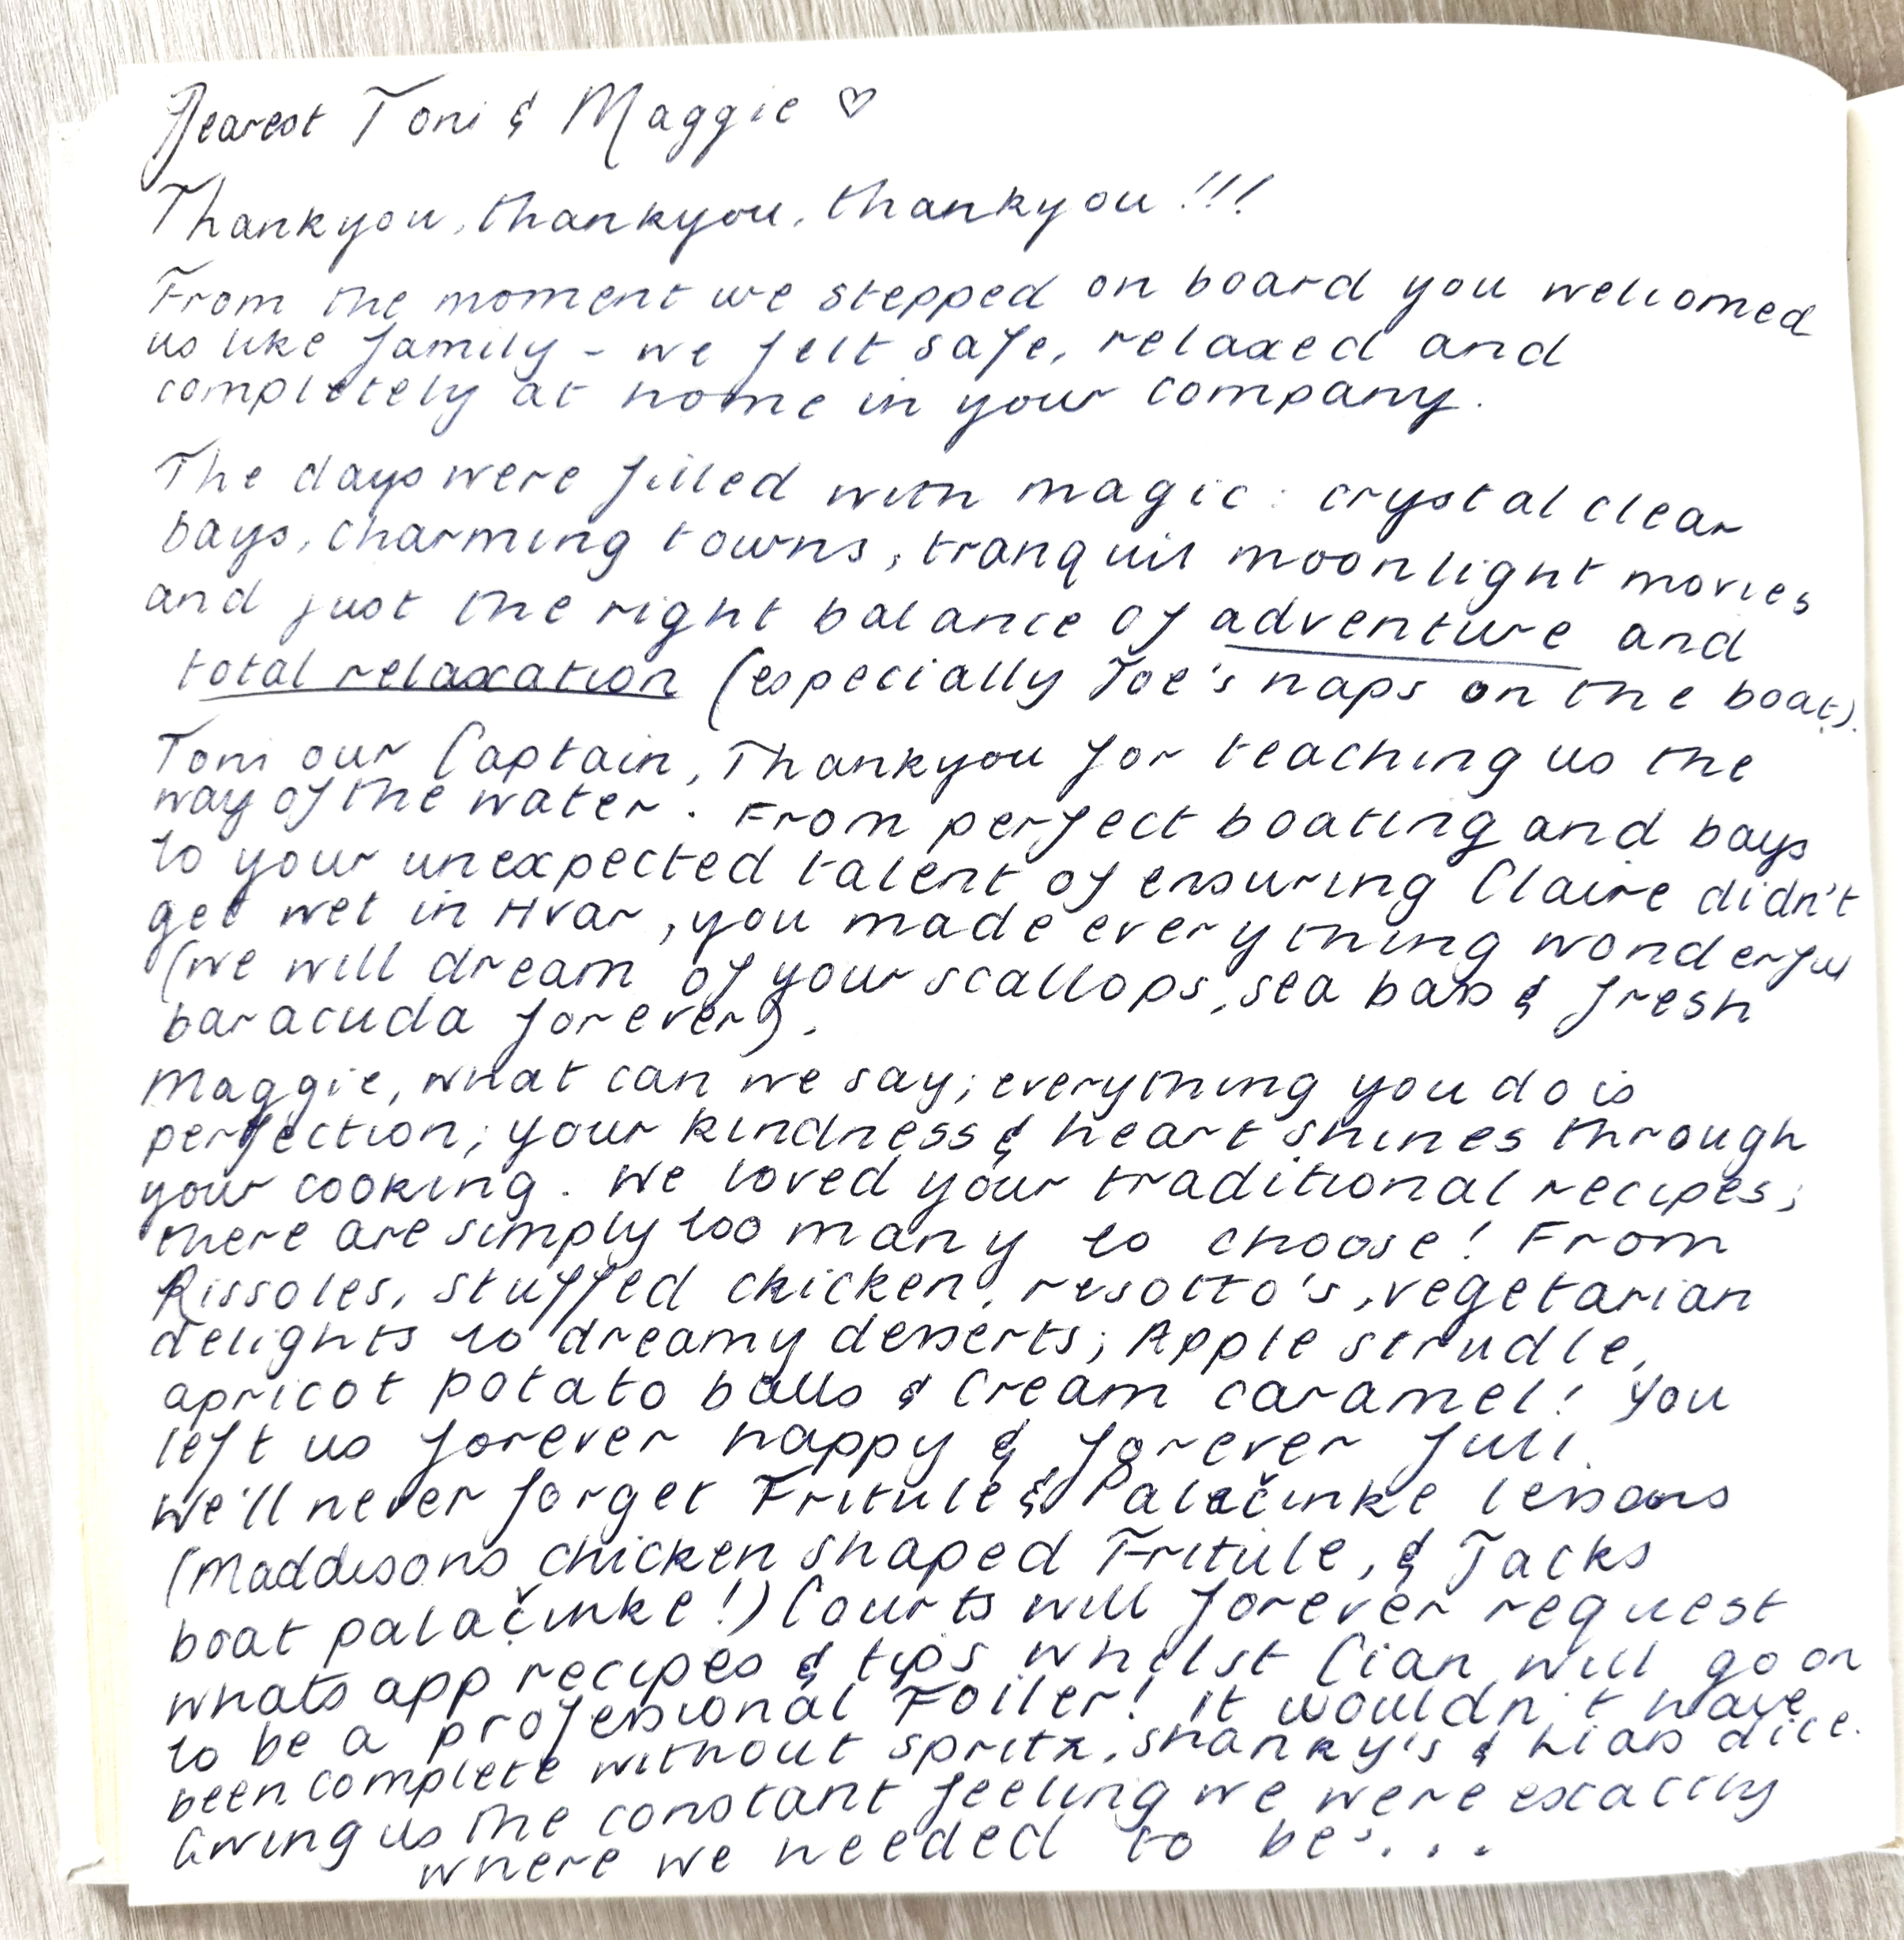 Dearest Toni & Maggie ♡
Thankyou, thankyou, thankyou!!!
From the moment we stepped on board you welcomed
us like family - we felt safe, relaxed and
completely at home in your company.
The days were filled with magic: crystal clear
bays, charming towns, tranquil moonlight movies
and just the right balance of adventure and
total relaxation (especially Joe's naps on the boat).
Toni our Captain, Thankyou for teaching us the
way of the water. From perfect boating and bays
to your unexpected talent of ensuring Claire didn't
get wet in Hvar, you made everything wonderful
(we will dream of your scallops, sea bass & fresh
baracuda forever).
Maggie, what can we say; everything you do is
perfection; your kindness & heart shines through
your cooking. We loved your traditional recipes;
there are simply too many to choose! From
Rissoles, stuffed chicken, resotto's, vegetarian
delights to dreamy desserts; Apple strudle,
apricot potato balls & Cream caramel! You
left us forever happy & forever full.
We'll never forget Fritule & Palačinke lessons
(Maddisons chicken shaped Fritule, & Jacks
boat palačinke!) Courts will forever request
whats app recipes & tips whilst Cian will go on
to be a professional Foiler! it wouldn't have
been complete without spritz, shanky's & Liars dice.
Giving us the constant feeling we were exactly
where we needed to be'...